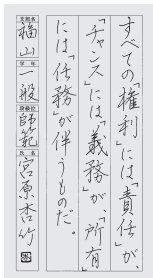 すべての「権利」には「責任」が、
「チャンス」には「義務」が、「所有」
には「任務」が伴うものだ。
支部名
福山
学年
一般
段級位
師範
氏名
宮原杏竹